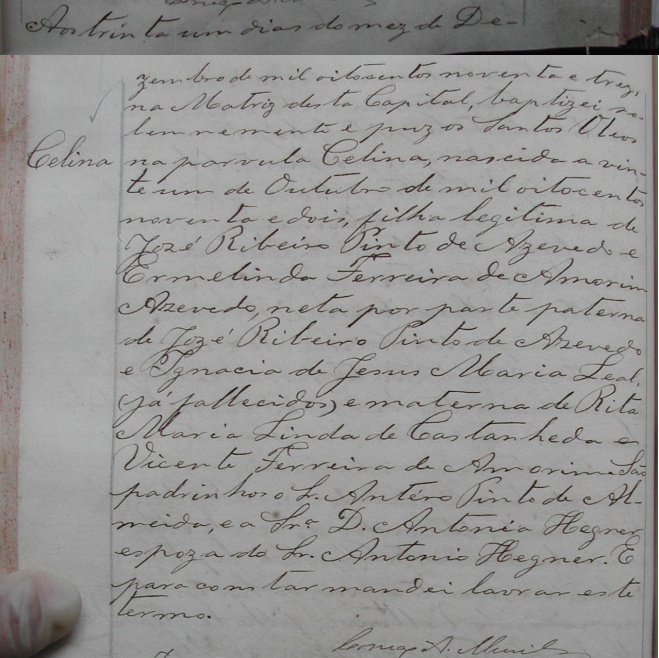 Aos trinta um dias do mez de De-
zembro de mil oitocentos noventa e trez,
na Matriz desta Capital, baptizei so-
lemnemente e puz os Santos Oleos
Celina
na parvula Celina, nascida a vin-
te um de Outubro de mil oitocentos
noventa e dois, filha legitima de
Jozé Ribeiro Pinto de Azevedo e
Ermelinda Ferreira de Amorim
Azevedo, neta por parte paterna
de Jozé Ribeiro Pinto de Azevedo
e Ignacia de Jesus Maria Leal,
(já fallecidos) e materna de Rita
Maria Linda de Castanheda e
Vicente Ferreira de Amorim. São
padrinhos o Sr. Antero Pinto de Al-
meida, e a Srª D. Antonia Hegner,
espoza do Sr. Antonio Hegner. E
para constar mandei lavrar este
termo.
Conego A.